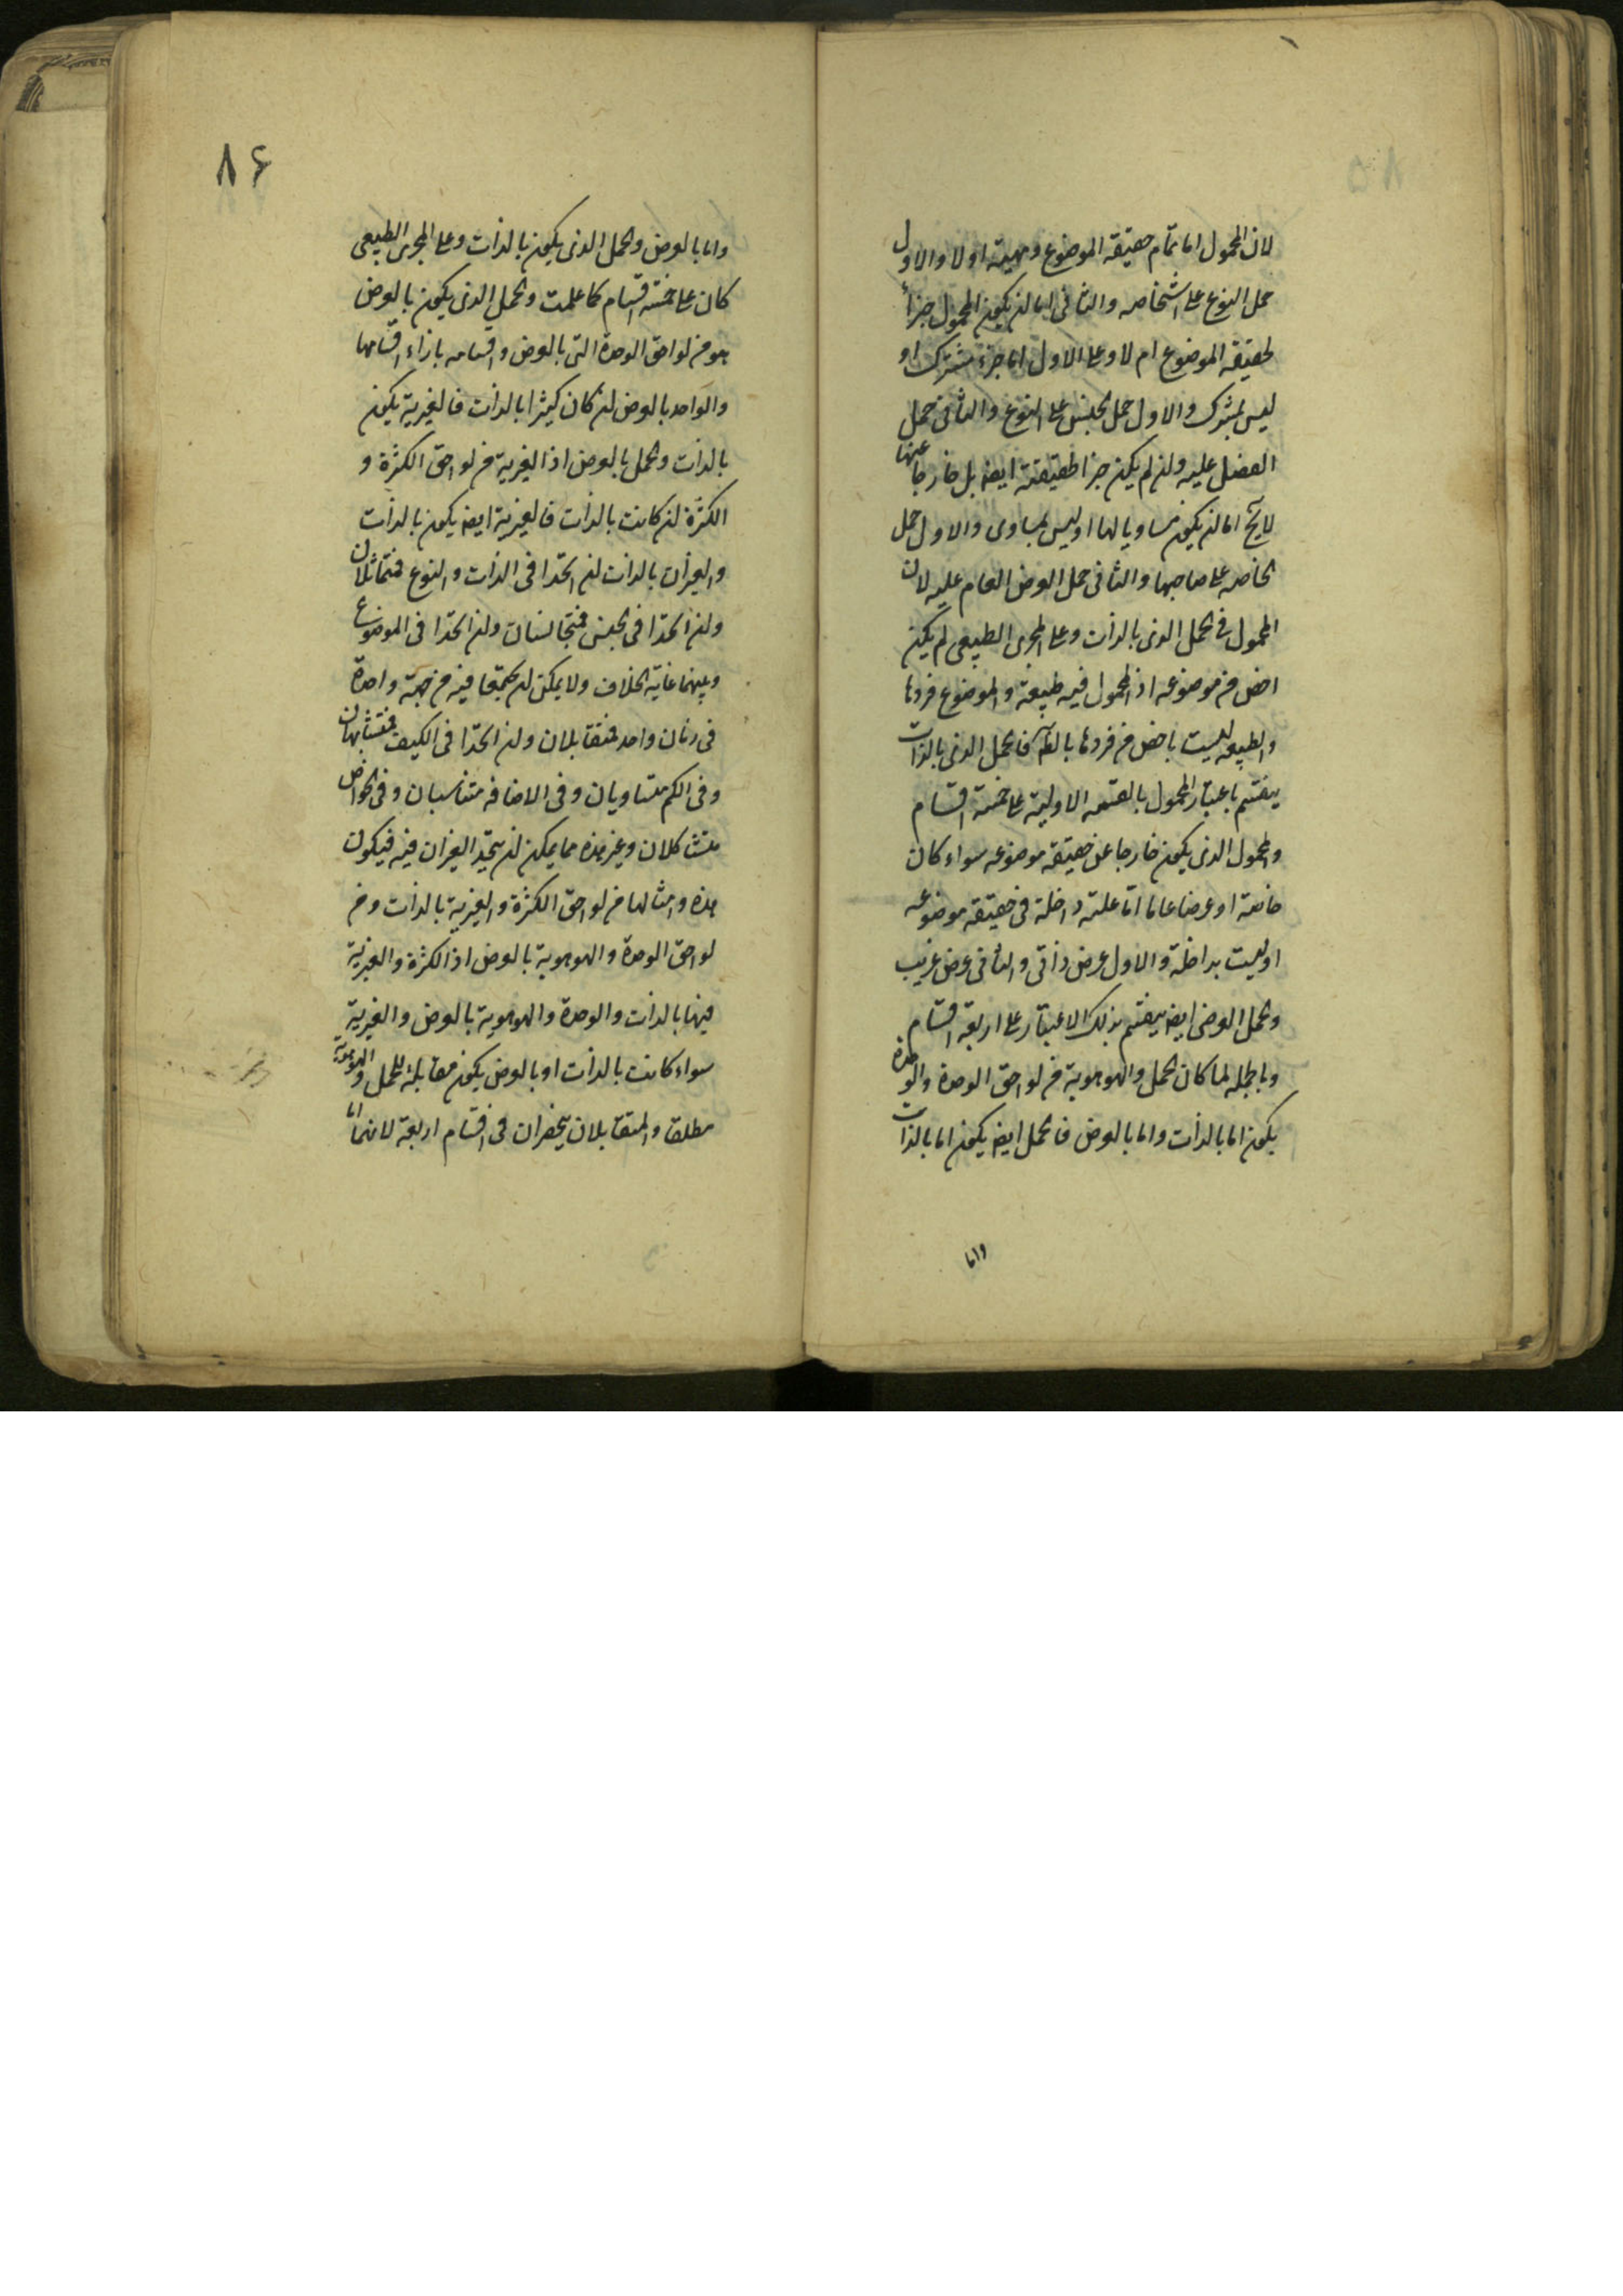 لان المحمول اما تمام حقيقة الموضوع ومهيته اولا والاول
حمل النوع على اشخاصه والثانى اما ان يكون المحمول جزأ
لحقيقة الموضوع ام لا وعلى الاول اما جزء مشترك او
ليس بمشترك والاول حمل الجنس على النوع والثانى حمل
الفصل عليه وان لم يكن جزأ لحقيقته ايضا بل خارجا عنها
لا يخ اما ان يكون مساويا لها او ليس بمساوى والاول حمل
الخاصه على صاحبها والثانى حمل العرض العام عليه لان
المحمول فى الحمل الذى بالذات وعلى المجرى الطبيعى لم يكن
اخص من موضوعه اذ المحمول فيه طبيعة والموضوع فردها
والطبيعه ليست باخص من فردها بالضرورة فالحمل الذى بالذات
ينقسم باعتبار المحمول بالقسمه الاولية على خمسة اقسام
والمحمول الذى يكون خارجا عن حقيقة موضوعه سواء كان
خاصة او عرضا عاما امّا علته داخلة فى حقيقة موضوعه
او ليست بداخلة والاول عرض ذاتى والثانى عرض غريب
والحمل العرضى ايضا ينقسم بذلك الاعتبار على اربعة اقسام
وبالجملة لما كان الحمل والهوهوية من لواحق الوحدة والوحدة
يكون اما بالذات واما بالعرض فالحمل ايضا يكون اما بالذات
واما
٨٦
واما بالعرض والحمل الذى يكون بالذات وعلى المجرى الطبيعى
كان على خمسة اقسام كما علمت والحمل الذى يكون بالعرض
هو من لواحق الوحدة التى بالعرض واقسامه بازاء اقسامها
والواحد بالعرض ان كان كثيرا بالذات فالغيرية يكون
بالذات والحمل بالعرض اذ الغيرية من لواحق الكثرة و
الكثرة ان كانت بالذات فالغيرية ايضا يكون بالذات
والغيران بالذات ان اتحدا فى الذات والنوع فمتماثلان
وان اتحدا فى الجنس فمتجانسان وان اتحدا فى الموضوع
وبينهما غاية الخلاف ولا يمكن ان يجتمعا فيه من جهة واحدة
فى زمان واحد فمتقابلان وان اتحدا فى الكيف فمتشابهان
وفى الكم متساويان وفى الاضافه متناسبان وفى الخواص
متشاكلان وغير هذه مما يمكن ان يتحد الغيران فيه فيكون
هذه وامثالها من لواحق الكثرة والغيرية بالذات ومن
لواحق الوحدة والهوهوية بالعرض اذ الكثرة والغيرية
فيها بالذات والوحدة والهوهوية بالعرض والغيرية
سواء كانت بالذات او بالعرض يكون مقابلة للحمل والهوهوية
مطلقا والمتقابلان ينحصران فى اقسام اربعة لانهما اما